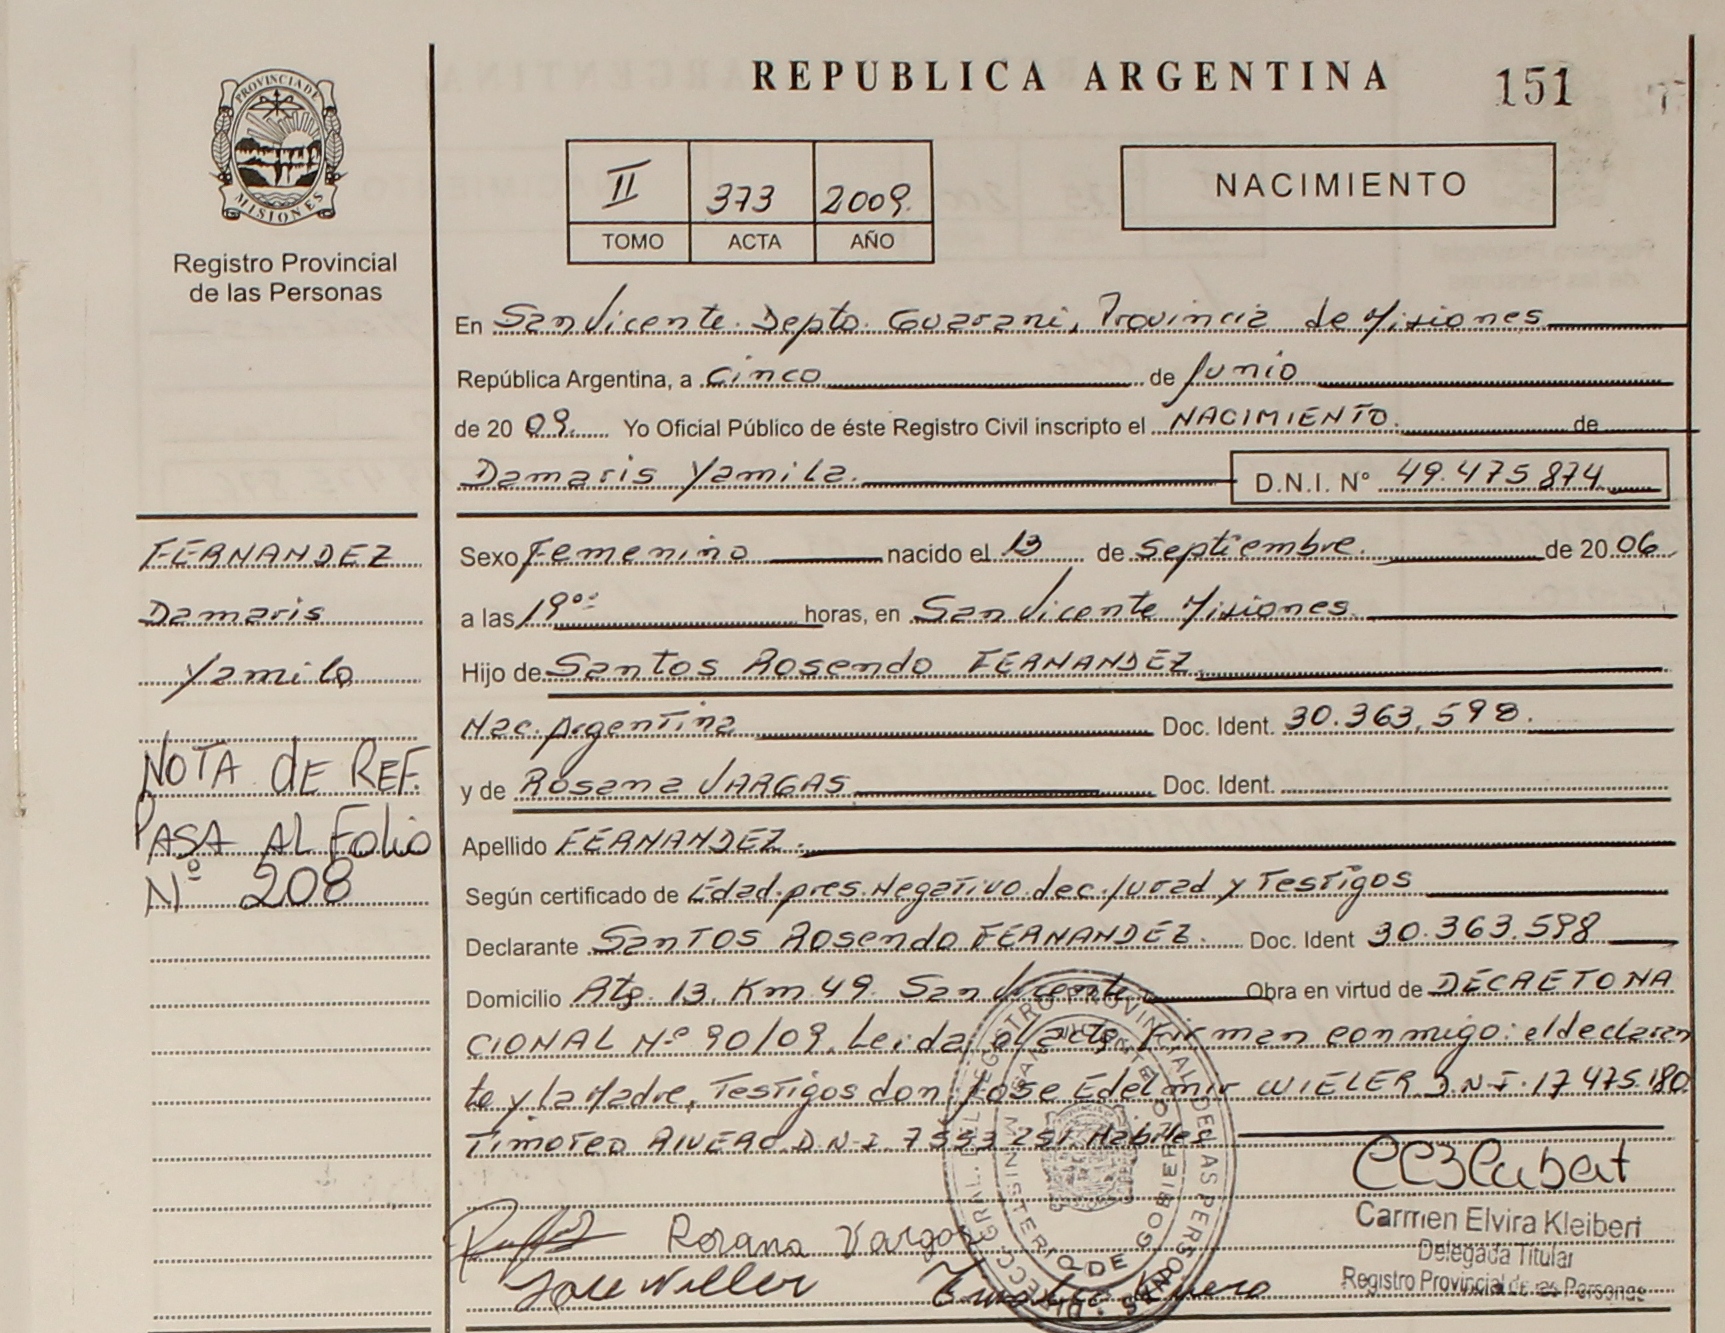 REPUBLICA ARGENTINA
151
PROVINCIA DE MISIONES
Registro Provincial
de las Personas
II 373 2009.
TOMO ACTA AÑO
NACIMIENTO
En San Vicente. Depto. Guarani, Provincia de Misiones
República Argentina, a Cinco de Junio
de 20 09. Yo Oficial Público de éste Registro Civil inscripto el NACIMIENTO. de
Damaris Yamila. D.N.I. N° 49.475.874
FERNANDEZ
Damaris
Yamila
NOTA de REF.
PASA AL Folio
Nº 208
Sexo Femenino nacido el 13 de septiembre. de 20 06
a las 19°° horas, en San Vicente Misiones.
Hijo de Santos Rosendo FERNANDEZ.
Nac. Argentina Doc. Ident. 30.363.598.
y de Rosana VARGAS Doc. Ident.
Apellido FERNANDEZ.
Según certificado de Edad.pres.Negativo.dec.jurad y Testigos
Declarante SanTOS Rosendo FERNANDEZ. Doc. Ident 30.363.598
Domicilio Rta. 13. Km 49. San Vicente. Obra en virtud de DECRETO NA
CIONAL Nº 90/09. Leida el acta, Firman conmigo: el declaran
te y la Madre, Testigos don: Jose Edelmir WIELER.D.N.I.17.475.180
TIMOTEO RIVERO.D.N.I. 7553 251. Habiles
Rosana Vargas
Carmen Elvira Kleibert
Delegada Titular
Registro Provincial de las Personas